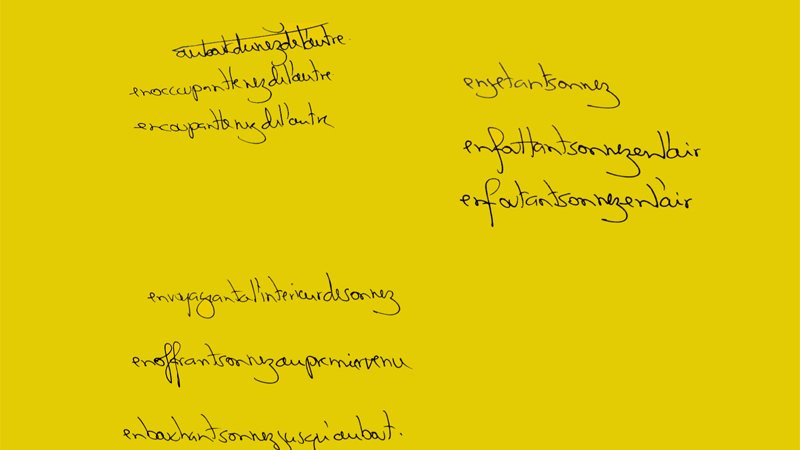 auboutdunezdel'autre.
enoccupantlenezdel'autre
encoupantlenezdel'autre
enjetantsonnez
enfoutantsonnezenl'air
envoyageantàl'intérieurdesonnez
enoffrantsonnezaupremiervenu
enbouchantsonnezjusqu'aubout.